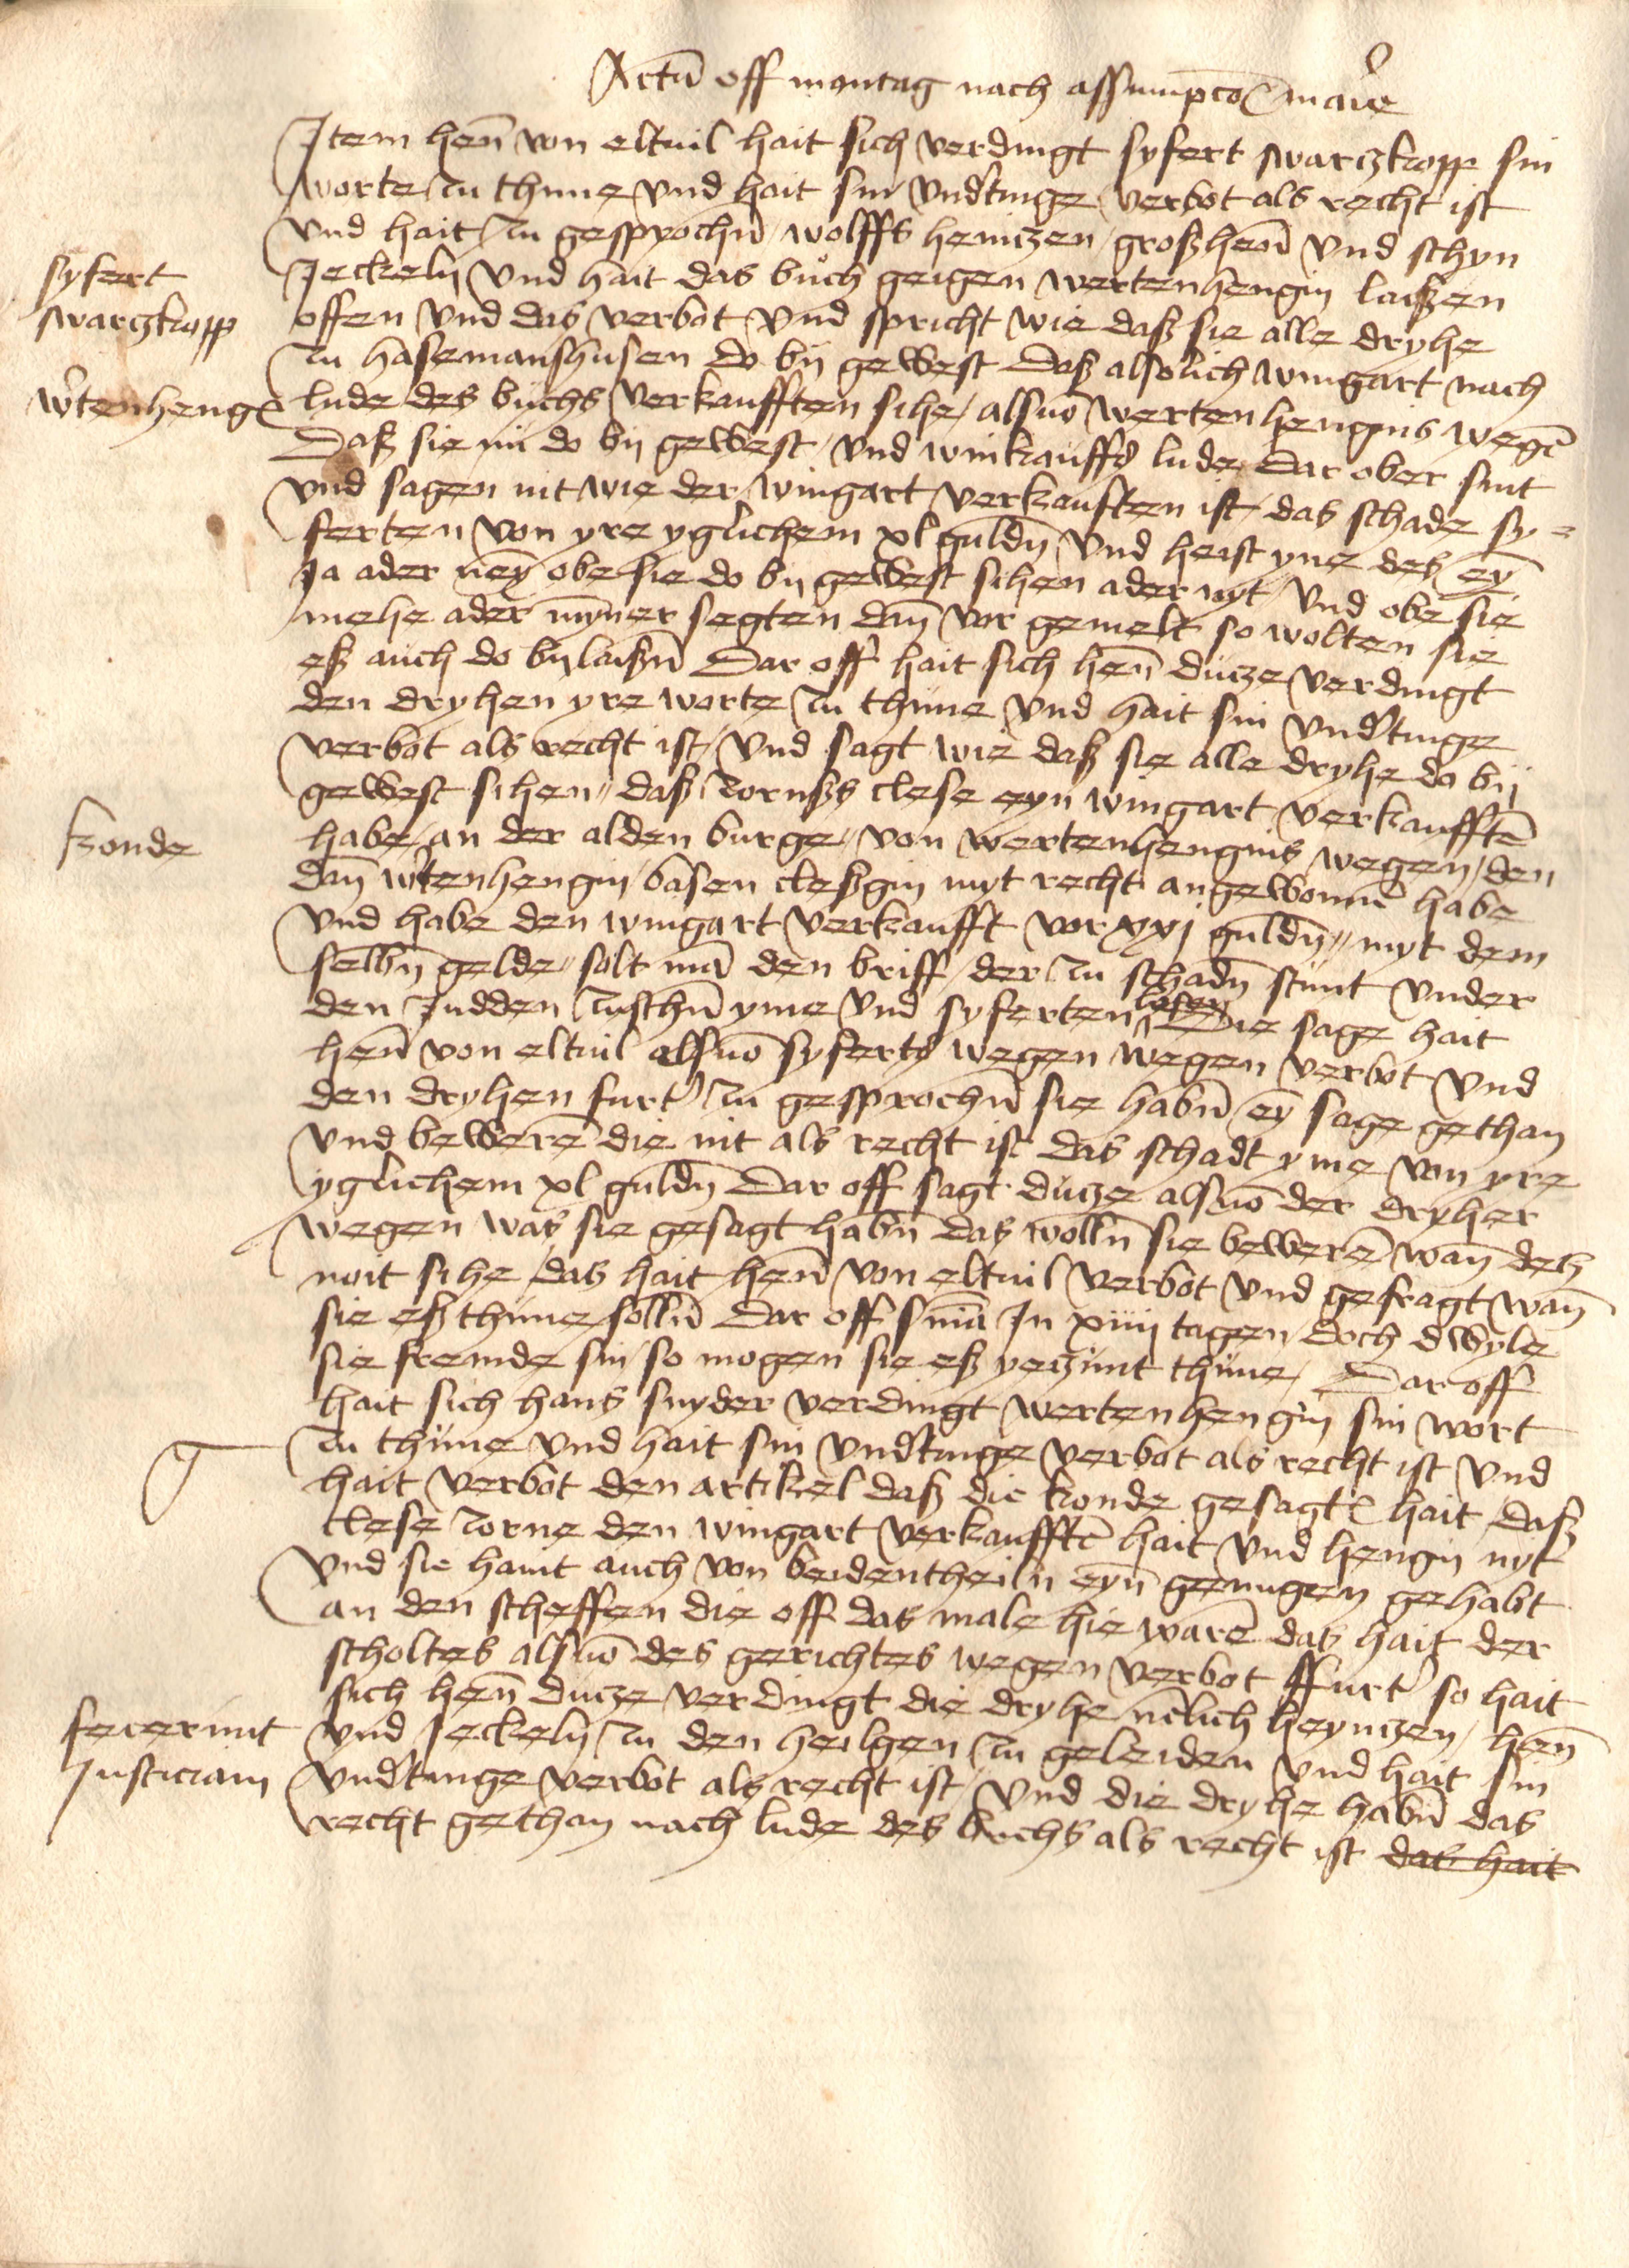 Actu off montag nach assumpcoē marie
Item hen von eltuil hait sich verdingt syfert swarczkopp sin
worte zu thune vnd hait sin vnd'tinge verbot als recht ist
vnd hait zu gesprochn wolffs henczen großhen vnd schyn
syfert
swarczkopp
Jeckeln vnd hait das buch geigen wertenhengin laißen
offen vnd das verbot vnd spricht wie daß sie alle dryhe
zu hasemanshusen do bij gewest daß alsolich wingart nach
w'tenheng
lude des buchs verkaufften sihe alsuo wertenhengins wegē
Daß sie nü do bij gewest vnd winkauffs lude dar ober sint
vnd sagen nit wie der wingart verkauften ist das schade sy=
ferten von yre yglichem xl guldn vnd heist yne des ey
Ja ader ney obe sie do bij gewest sihen ader nyt vnd obe sie
mehe ader mynner segten dan vor gemelt so wolten sie
eß auch do bij laißn Dar off hait sich hen ducze verdingt
den dryhen yre worte zu thune vnd hait sin vnd'tinge
verbot als recht ist vnd sagt wie daß sie alle dryhe do bij
gewest sihen daß zornß clese eyn wingart verkaufftē
konde
habe an der alden burge von wertenhengins wegen den
dan w'tenhengin basen cleßgin myt recht angewonnē habe
vnd habe den wingart verkaufft vor xxj guldn myt dem
selbn gelde solt mā den briff der zu schadn stunt vnder
den Judden zuschn yme vnd syferten losen Die sage hait
hen von eltuil alsuo syferts wegen wegen verbot vnd
den dryhen furt' zu gesprochn sie habn ey sage gethan
vnd bewerē die nit als recht ist das schadt yme von yre
yglichem xl guldn Dar off sagt ducze alsuo der dryher
wegen was sie gesagt habn das wolln sie bewerē wan deß
noit sihe das hait hen von eltuil verbot vnd gefragt wan
sie eß thune solln Dar off sniā In xiiij tagen doch dwyle
sie fremde sin so mogen sie eß yeczunt thune Dar off
hait sich hans snyder verdingt wertenhengin sin wort
zu thune vnd hait sin vnd'tinge verbot als recht ist vnd
hait verbot den artikel daß die konde gesagt hait daß
clese zorne den wingart verkaufftē hait vnd hengin nyt
vnd sie haint auch von beidentheiln eyn genugen gehabt
an den scheffen die off das male hie warē das hait der
scholtes alsuo des gerichtes wegen verbot ffurt' so hait
sich hen ducze verdingt die dryhe nēlich heynczen hen
fecerunt
Justiciam
vnd Jeckeln zu den heilgen zu geleiden vnd hait sin
vnd'tinge verbot als recht ist vnd die dryhe habn das
recht gethan nach lude des buchs als recht ist das hait